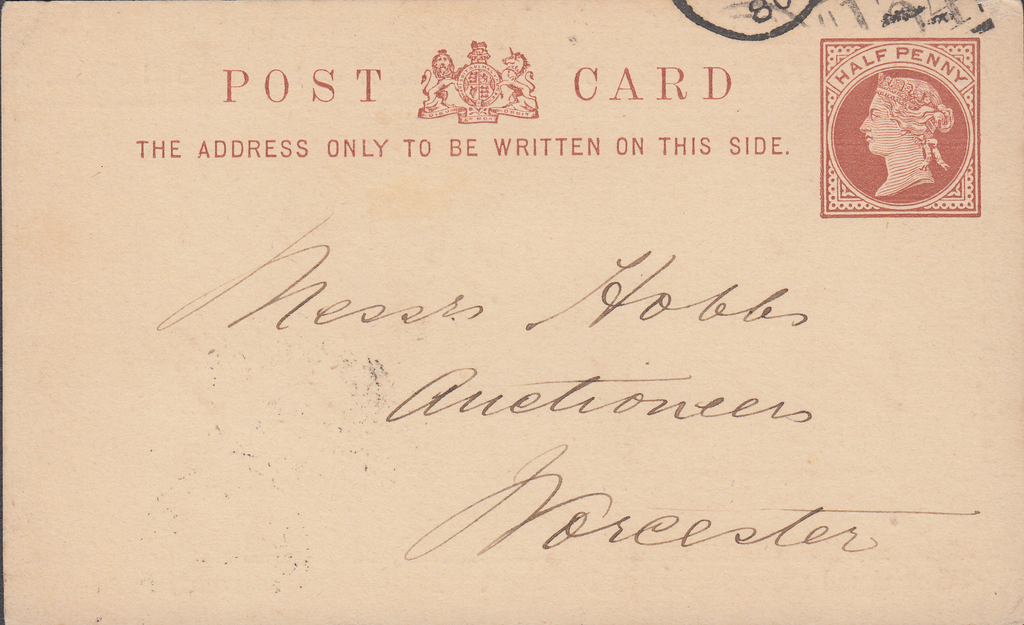 POST CARD
THE ADDRESS ONLY TO BE WRITTEN ON THIS SIDE.
HALF PENNY
Messrs Hobbs
Auctioneers
Worcester